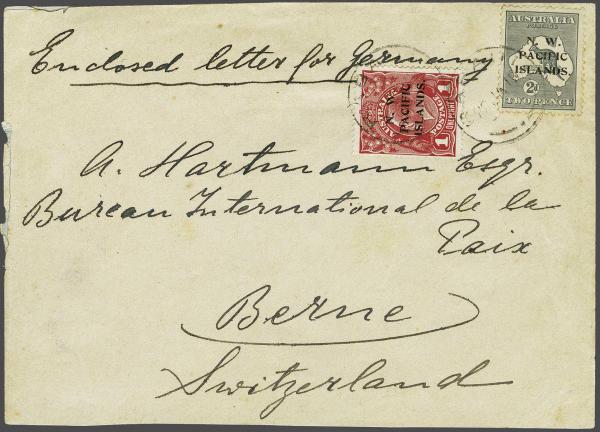 Enclosed letter for Germany
AUSTRALIA
POSTAGE
N. W.
PACIFIC
ISLANDS.
2D
TWO PENCE
AUSTRALIA
POSTAGE
N. W.
PACIFIC
ISLANDS.
1
ONE PENNY
1
A. Hartmann Esqr.
Bureau International de la
Paix
Berne
Switzerland